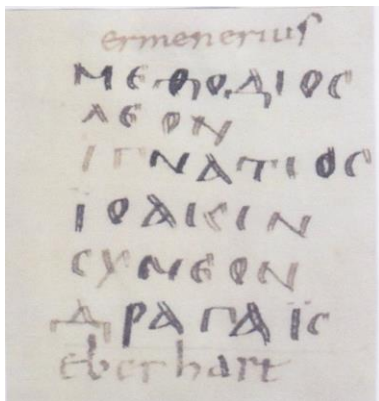 ermenerius
ΜΕΘΟΔΙΟС
ΛΕΟΝ
ΙΓΝΑΤΙΟС
ΙΟΑΚΙΝ
СΥΜΕΟΝ
ΔΡΑΓΑΪС
eberhart